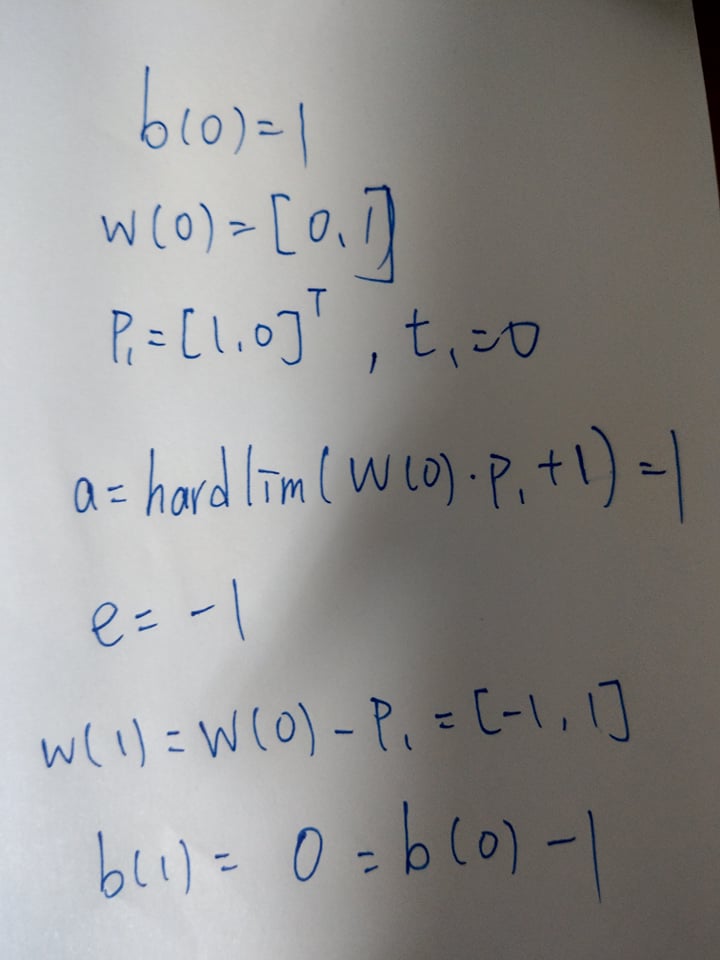 b(0)=1
W(0)=[0,1]
P₁=[1,0]ᵀ, t₁=0
a=hardlim(W(0)·P₁+1)=1
e=-1
W(1)=W(0)-P₁=[-1,1]
b(1)=0=b(0)-1